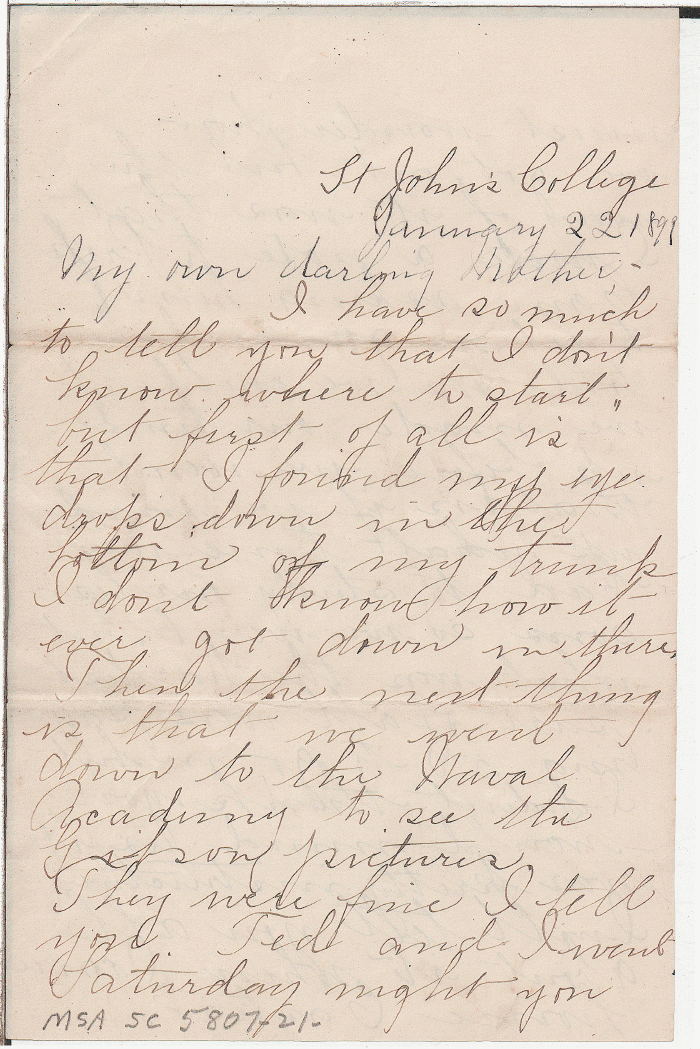 St John's College
January 22 1899
My own darling Mother-
I have so much
to tell you that I don't
know where to start,,
but first of all is
that I found my eye
drops down in the
bottom of my trunk
I dont know how it
ever got down in there.
Then the next thing
is that we went
down to the Naval
Academy to see the
Gibson pictures
They were fine I tell
you Ted and I went
Saturday night you
MSA SC 5807-21-